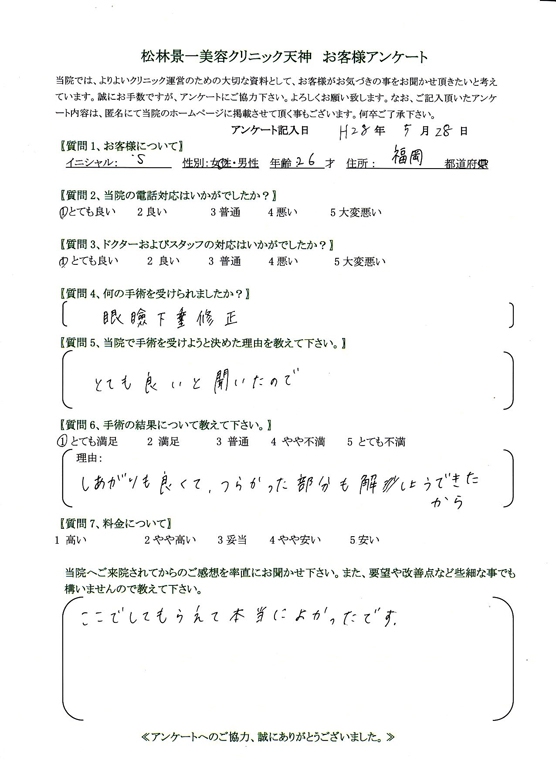 松林景一美容クリニック天神 お客様アンケート
当院では、よりよいクリニック運営のための大切な資料として、お客様がお気づきの事をお聞かせ頂きたいと考え
ています。誠にお手数ですが、アンケートにご協力下さい。よろしくお願い致します。なお、ご記入頂いたアンケ
ート内容は、匿名にて当院のホームページに掲載させて頂く事もございます。何卒ご了承下さい。
アンケート記入日 H28年 5月28日
〖質問1、お客様について〗
イニシャル： S 性別：女性・男性 年齢 26 才 住所： 福岡 都道府県
〖質問2、当院の電話対応はいかがでしたか？〗
①とても良い 2 良い 3 普通 4 悪い 5 大変悪い
〖質問3、ドクターおよびスタッフの対応はいかがでしたか？〗
①とても良い 2 良い 3 普通 4 悪い 5 大変悪い
〖質問4、何の手術を受けられましたか？〗
眼瞼下垂修正
〖質問5、当院で手術を受けようと決めた理由を教えて下さい。〗
とても良いと聞いたので
〖質問6、手術の結果について教えて下さい。〗
①とても満足 2 満足 3 普通 4 やや不満 5 とても不満
理由：
しあがりも良くて、つらかった部分も解消しようできた
から
〖質問7、料金について〗
1 高い 2 やや高い 3 妥当 4 やや安い 5 安い
当院へご来院されてからのご感想を率直にお聞かせ下さい。また、要望や改善点など些細な事でも
構いませんので教えて下さい。
ここでしてもらえて本当によかったです。
≪アンケートへのご協力、誠にありがとうございました。≫